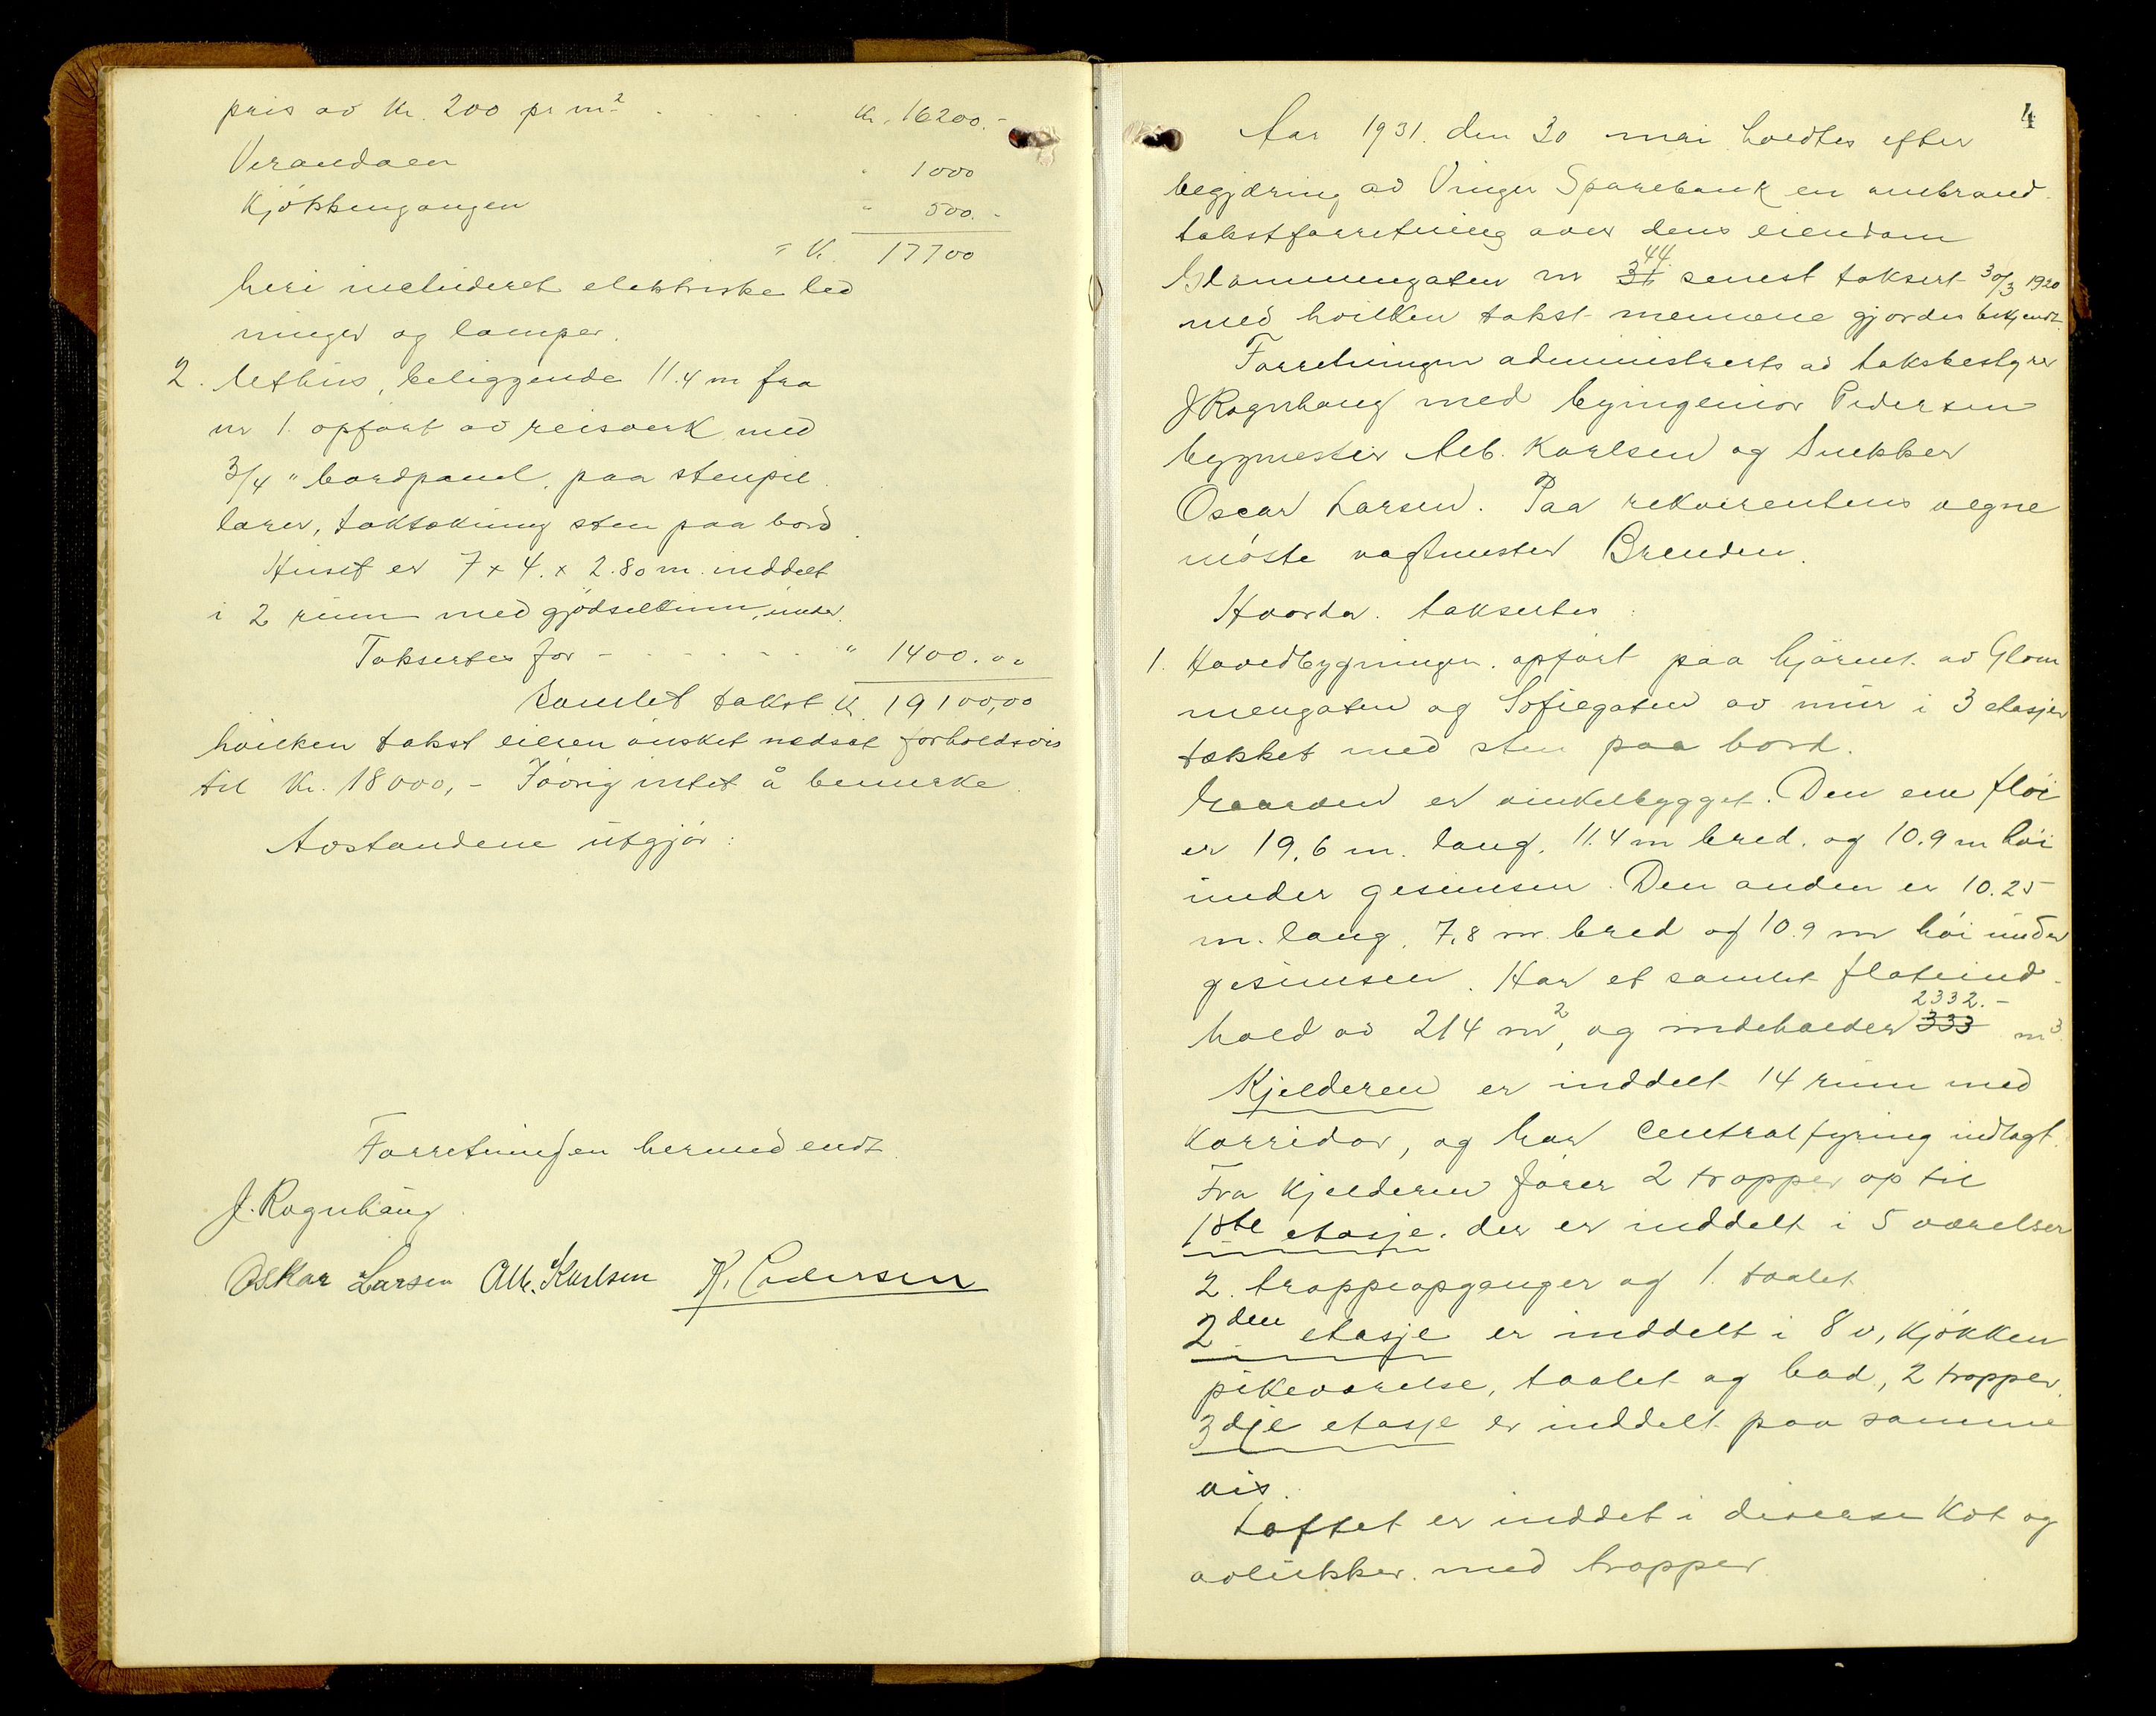 pris av Kr. 200 pr m² . . . . Kr. 16200.-
Verandaen " 1000
Kjökkengangen " 500.-
= Kr. 17700
heri includeret elektriske led
ninger og lamper.
2. Uthus, beliggende 11.4 m fra
nr 1. opført av reisverk med
3/4 " bordpanel, paa stenpil
larer, taktækning sten paa bord.
Huset er 7 x 4. x 2.80 m. inddelt
i 2 rum med gjødselkum under.
Taksertes for - - - - - " 1400.00
Samlet takst Kr. 19100,00
hvilken takst eieren ønsket nedsat forholdsvis
til Kr. 18000,- Iøvrig intet å bemerke.
Avstandene utgjør:
Forretningen hermed endt
J. Rognhaug
Oskar Larsen Alb. Karlsen K. Pedersen
4
Aar 1931. den 30 mai holdtes efter
begjæring av Vinger Sparebank en ombrand
takstforretning over dens eiendom
Glommengaten nr 44 31 senest taksert 30/3 1920
med hvilken takst mennene gjordes bekjendt.
Forretningen administrerts av takstbestyrer
J Rognhaug med byingeniør Pedersen
bygmester Alb. Karlsen og Snekker
Oscar Larsen. Paa rekvirentens vegne
møtte vagtmester Brenden.
Hvorda. taksertes:
1. Hovedbygningen. opført paa hjørnet av Glom
mengaten og Sofiegaten av mur i 3 etasjer
tækket med sten paa bord.
Gaarden er vinkelbygget. Den ene fløi
er 19.6 m. lang. 11.4 m bred. og 10.9 m høi
under gesimsen. Den anden er 10.25
m. lang, 7.8 m. bred og 10.9 m høi under
gesimsen. Har et samlet flateind-
2332.-
hold av 214 m², og indeholder 333 m³.
Kjelderen er inddelt 14 rum med
Korridor, og har Centralfyring indlagt.
Fra Kjelderen fører 2 trapper op til
1ste etasje. der er inddelt i 5 værelser
2. trappeopganger og 1. toalet
2den etasje er inddelt i 8 v, Kjøkken
pikeværelse, toalet og bad, 2 trapper.
3dje etasje er inddelt paa samme
vis.
Loftet er inddet i diverse Kot og
avlukker. med trapper.